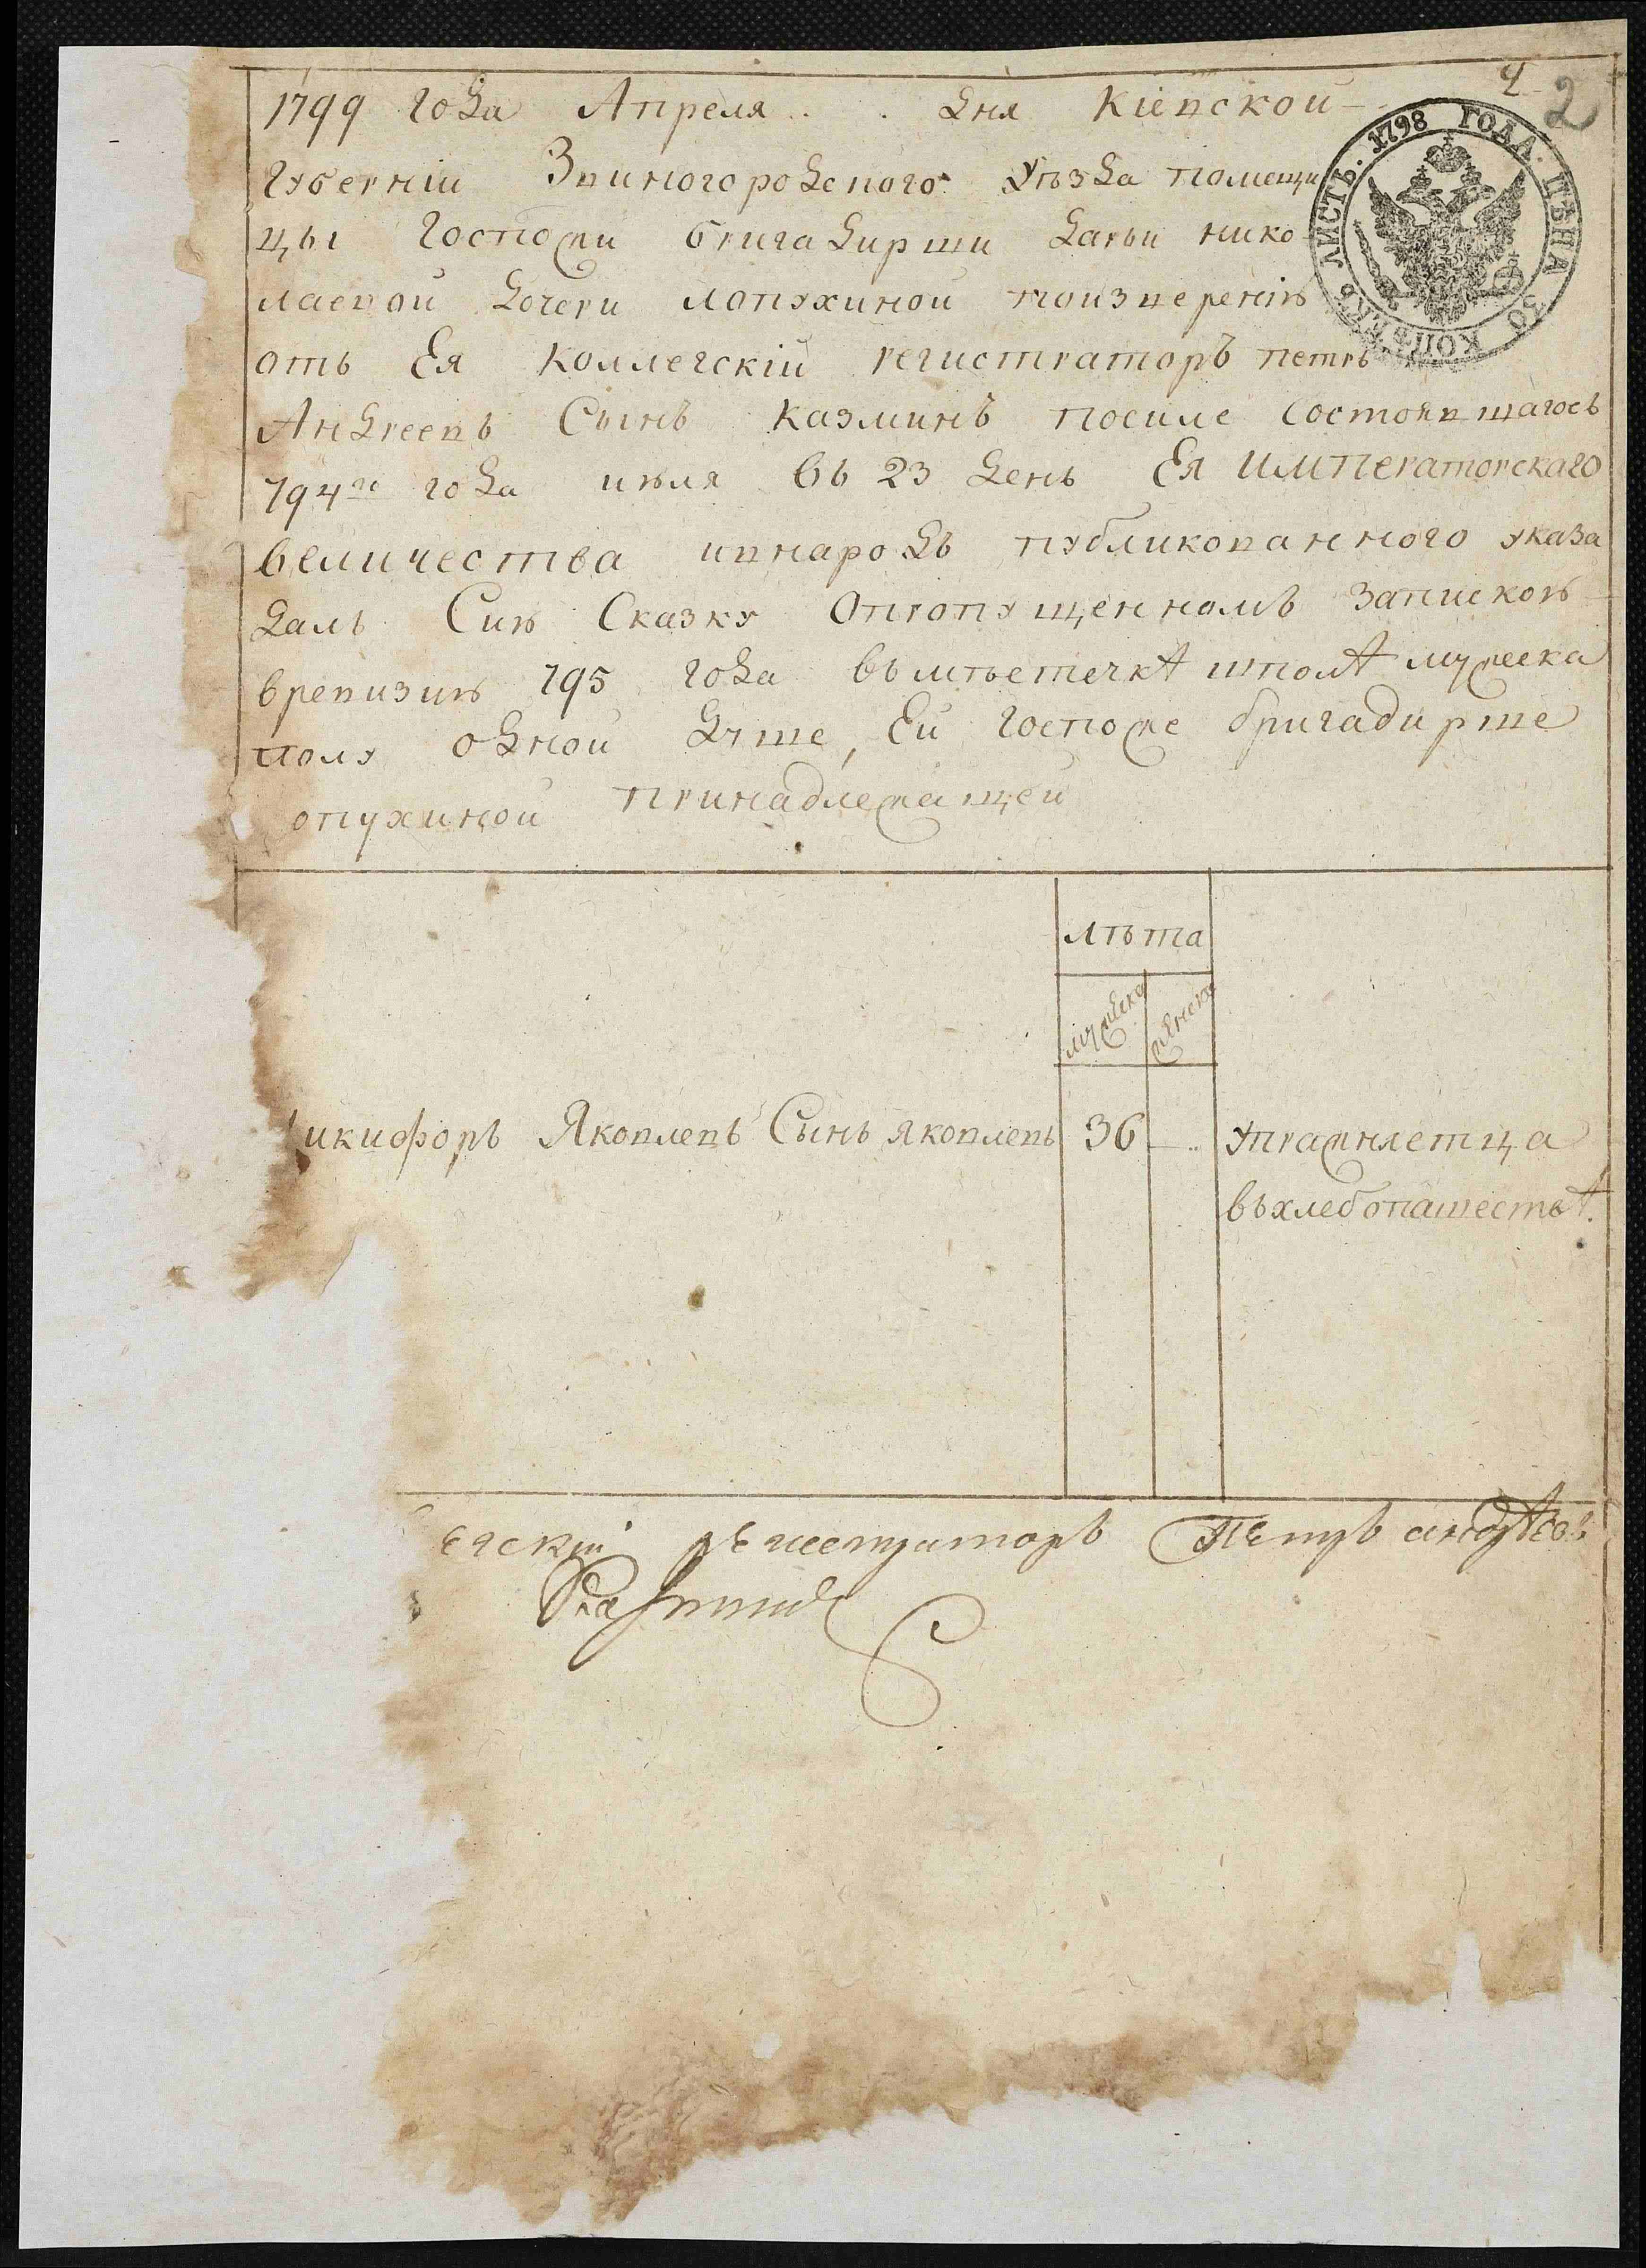 4 2
ЛИСТЪ. 1798 ГОДА. ЦѢНА 30 КОПѢЕКЪ
1799 года Апреля . . дня Кіевской
губерніи Звиногородского уѣзда помещи
цы Госпожи бригадирши дарьи нико
лаевой дочери лопухиной повѣренію
отъ Ея коллегскій регистраторъ петръ
Андреевъ Сынъ казминъ посиле состоявшагось
794го года июля въ 23 день Ея императорскаго
величества ивнародъ публикованного указа
далъ Сию Сказку опропущенномъ запискою
вревизию 795 года въ мѣстечкѣ шполѣ мужеска
полу одной душе, Ей госпоже бригадирше
опухиной принадлежащей
лѣта
мужеска
женска
икифоръ Яковлевъ Сынъ яковлевъ 36 — .. упражняетца
въ хлебопашествѣ.
егскій регистраторъ Петръ андрѣевъ
Казминъ